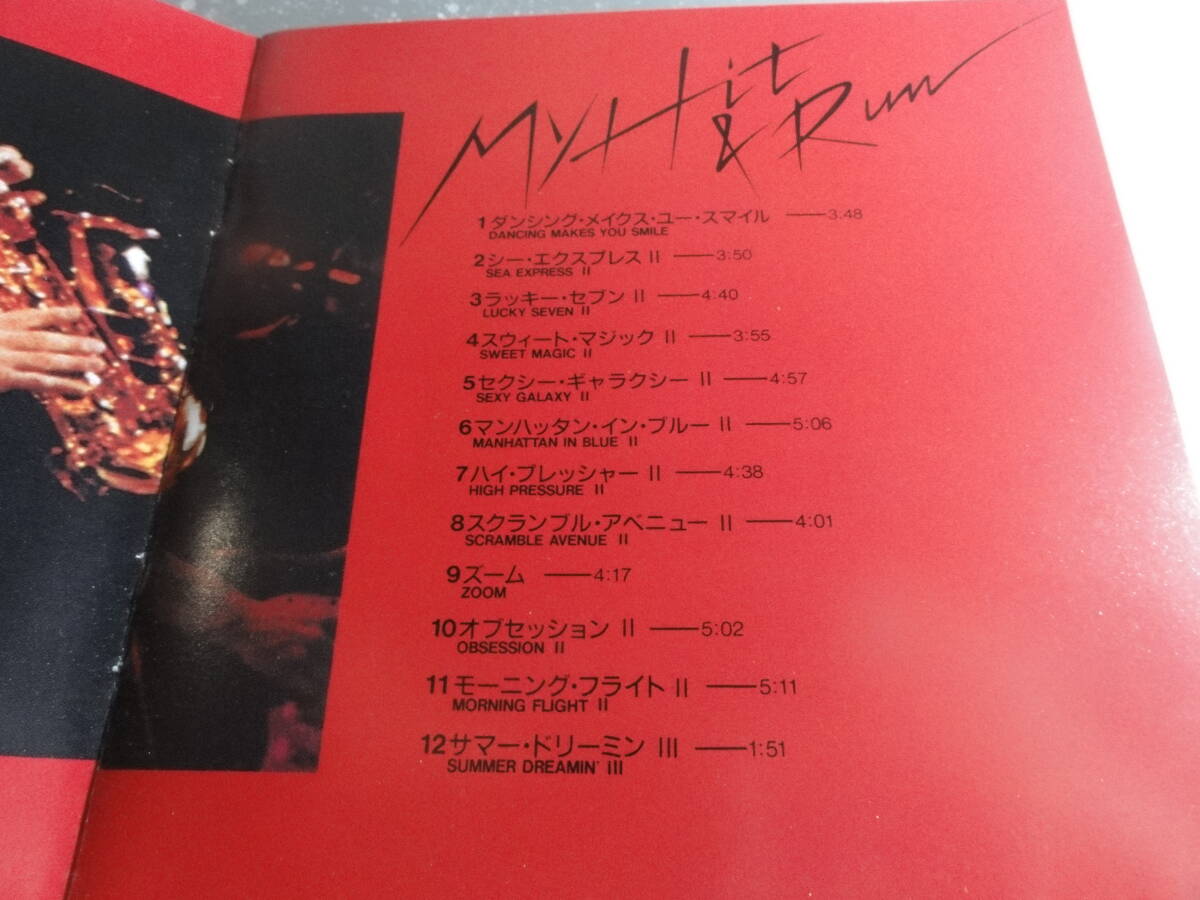 My Hit & Run
1 ダンシング・メイクス・ユー・スマイル ——3:48
DANCING MAKES YOU SMILE
2 シー・エクスプレス II ——3:50
SEA EXPRESS II
3 ラッキー・セブン II ——4:40
LUCKY SEVEN II
4 スウィート・マジック II ——3:55
SWEET MAGIC II
5 セクシー・ギャラクシー II ——4:57
SEXY GALAXY II
6 マンハッタン・イン・ブルー II ——5:06
MANHATTAN IN BLUE II
7 ハイ・プレッシャー II ——4:38
HIGH PRESSURE II
8 スクランブル・アベニュー II ——4:01
SCRAMBLE AVENUE II
9 ズーム ——4:17
ZOOM
10 オブセッション II ——5:02
OBSESSION II
11 モーニング・フライト II ——5:11
MORNING FLIGHT II
12 サマー・ドリーミン III ——1:51
SUMMER DREAMIN' III